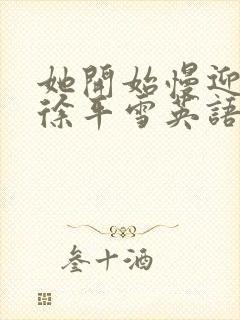 她開始慢迎
徐平雪英語
叁十酒